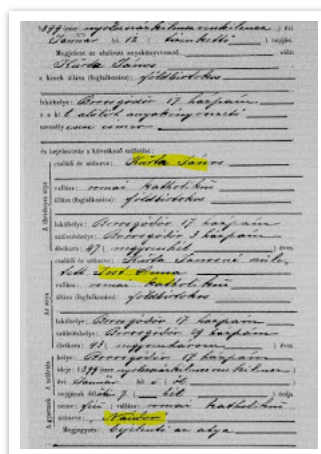 1899 (ezer nyolczszázkilenczvenkilencz) évi
Január hó 12 (tizenkettő) napján.
Megjelent az alulirott anyakönyvvezető előtt
Kürta János
a kinek állása (foglalkozása): földbirtokos
lakóhelye: Borosgödör 17 házszám
a kit alulírt anyakönyvvezető
személyesen ismer
és bejelentette a következő születést:
családi és utóneve: Kürta János
vallása: római katholikus
állása (foglalkozása): földbirtokos
lakóhelye: Borosgödör 17 házszám
születéshelye: Borosgödör 3 házszám
életkora: 47 (negyvenhét) éves
családi és utóneve: Kürta Jánosné szüle-
tett Anna
vallása: római katholikus
állása (foglalkozása): földbirtokos
lakóhelye: Borosgödör 17 házszám
születéshelye: Borosgödör 29 házszám
életkora: 43 (negyvenhárom) éves
helye: Borosgödör 17 házszám
ideje: 1899 ezernyolczszázkilenczvenkilencz
évi Január hó 5 (öt)
napjának délután 7 (hét) órája
neme: fiú; vallása: római katholikus
utóneve: Nándor
Megjegyzés: bejelentő az atya
A törvényes atya
Az anya
A születés
A gyermek